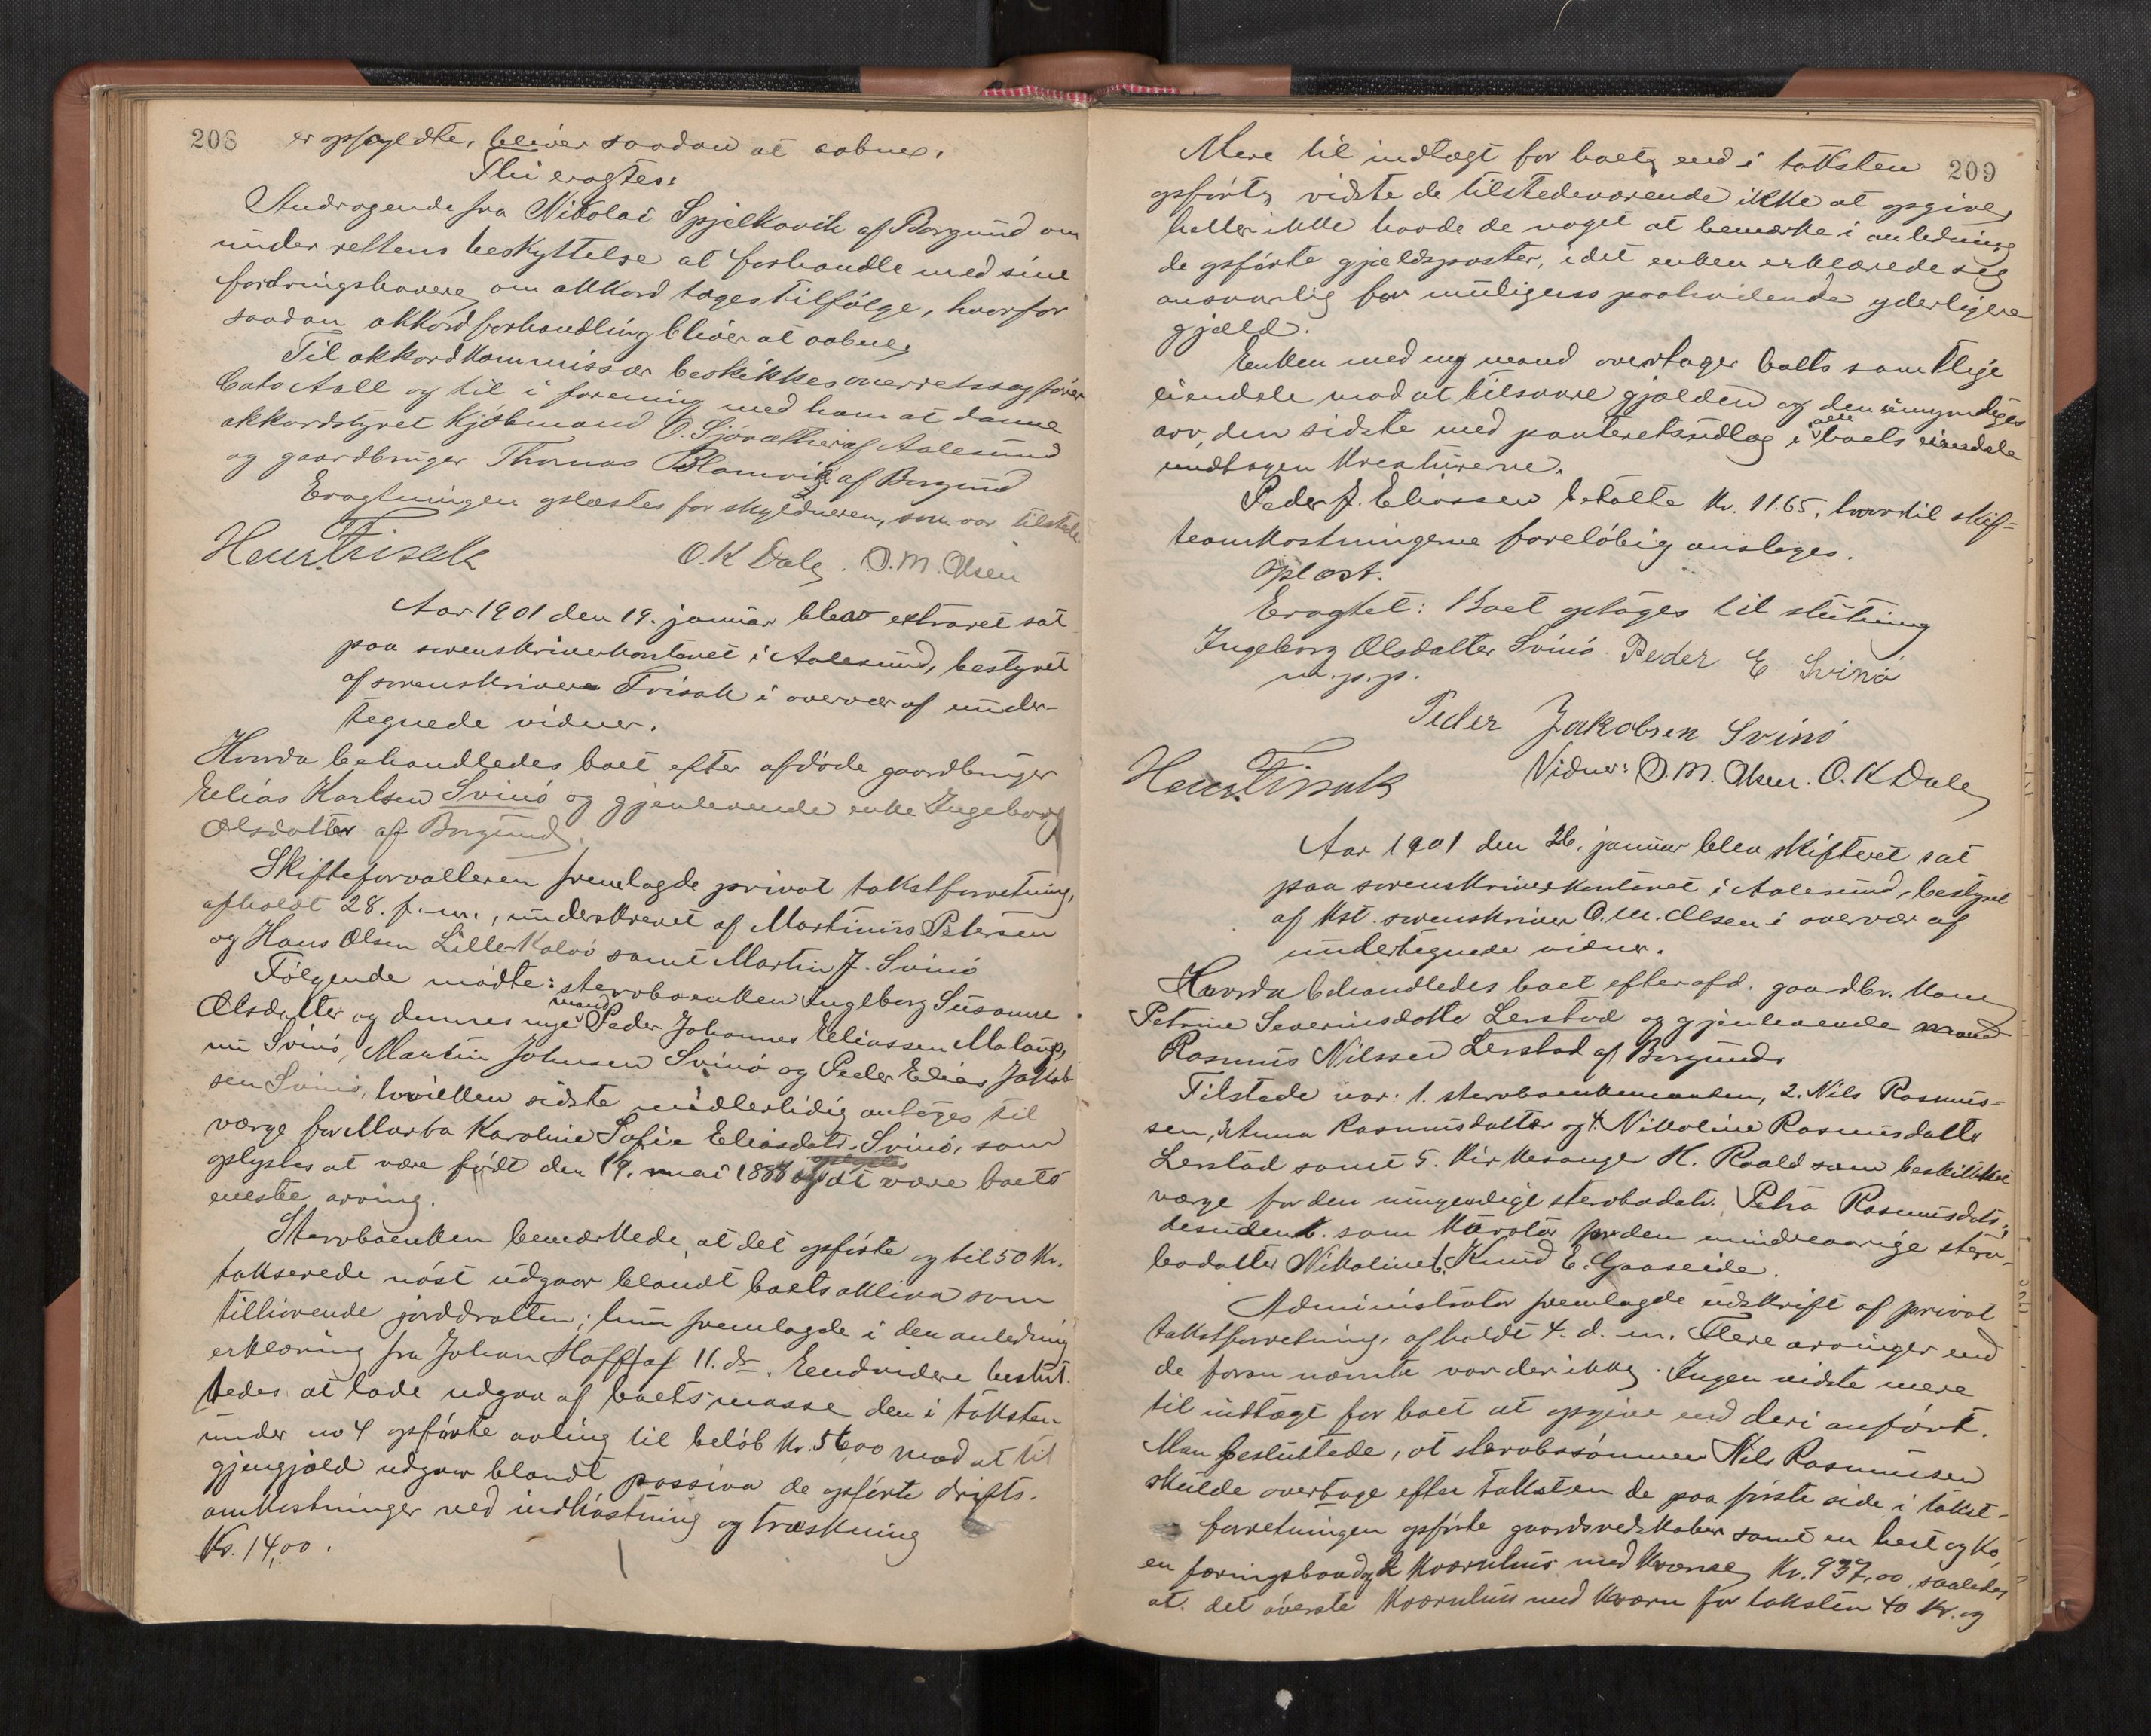 208
er opfyldte, bliver saadan at aabnes.
Thi eragtes:
Andragende fra Nikolai Spjelkavik af Borgund om
under rettens beskyttelse at forhandle med sine
fordringshavere om akkord tages tilfölge, hvorfor
saadan akkordforhandling bliver at aabne.
Til akkordkommissær beskikkes overretssagförer
Cato Aall og til i forening med ham at danne
akkordstyret kjöbmand C. af Aalesund
og gaardbruger Thomas Blomvik af Borgund
Eragtningen oplæstes for skyldneren, som var tilstede
Henr. Frisak O. K Dale. O. M. Olsen
Aar 1901 den 19. januar blev extraret sat
paa sorenskriverkontoret i Aalesund, bestyret
af sorenskriver Frisak i overvær af under-
tegnede vidner.
Hvorda behandledes boet efter afdöde gaardbruger
Elias Karlsen Svinö og gjenlevende enke Ingeborg
Olsdatter af Borgund.
Skifteforvalteren fremlagde privat takstforretning,
afholdt 28. f. m., underskrevet af Martinus Petersen
og Hans Olsen Lillekalvö samt Martin J. Svinö
Fölgende mödte: stervboenken Ingeborg Susanne
Olsdatter og dennes nye mand Peder Johannes Eliassen
nu Svinö, Martin Johnsen Svinö og Peder Elias Jakob-
sen Svinö, hvilken sidste midlertidig antoges til
værge for Marta Karoline Sofie Eliasdatr. Svinö, som
oplystes at være född den 19. mai 1888 og at være boets
eneste arving.
Stervboenken bemærkede, at det opförte og til 50 Kr.
takserede nöst udgaar blandt boets aktiva som
tilhörende jorddrotten; hun fremlagde i den anledning
erklæring fra Johan Hoff af 11. ds. Endvidere beslut-
tedes at lade udgaa af boets masse den i taksten
under no 4 opförte avling til belöb Kr. 56,00 mod at til
gjengjæld udgaar blandt passiva de opförte drifts-
omkostninger ved indhöstning og træskning
Kr. 14,00.
209
Mere til indtægt for boet, end i taksten
opfört, vidste de tilstedeværende ikke at opgive,
heller ikke havde de noget at bemærke i anledning
de opförte gjældsposter, idet enken erklærede sig
ansvarlig for muligens paahvilende yderligere
gjæld.
Enken med ny mand overtager boets samtlige
eiendele mod at tilsvare gjælden og den umyndiges
arv, den sidste med panteretsudlæg i alle boets eiendele
undtagen kreaturerne.
Peder J. Eliassen betalte Kr. 11.65, hvortil skif-
teomkostningerne forelöbig ansloges.
Oplæst.
Eragtet: Boet optages til slutning
Ingeborg Olsdatter Svinö Peder E Svinö
m. p. p.
Peder Jakobsen Svinö
Henr. Frisak Vidner: O. M. Olsen. O. K Dale
Aar 1901 den 26. januar blev skifteret sat
paa sorenskriverkontoret i Aalesund, bestyret
af kst. sorenskriver O. M. Olsen i overvær af
undertegnede vidner.
Hvorda behandledes boet efter afd. gaardbr. kone
Petrine Severinsdatter Lerstad og gjenlevende mand
Rasmus Nilssen Lerstad af Borgund.
Tilstede var: 1. stervboenkemanden, 2. Nils Rasmus-
sen, 3 Anna Rasmusdatter og 4. Nikoline Rasmusdatter
Lerstad samt 5. kirkesanger H. Roald som beskikket
værge for den umyndige stervbodatr. Petra Rasmusdatr.;
desuden 6. som kurator for den mindreaarige sterv-
bodatter Nikoline: Knud E. Gaaseide.
Administrator fremlagde udskrift af privat
takstforretning, afholdt 4. d. m. Flere arvinger end
de foran nævnte var der ikke. Ingen vidste mere
til indtægt for boet at opgive end deri anfört.
Man besluttede, at stervbosönnen Nils Rasmussen
skulde overtage efter taksten de paa förste side i takst-
forretningen opförte gaardsredskaber samt en hest og ko,
en færingsbaad og 2 kværnhus med kværne Kr. 937,00, saaledes
at det överste kværnhus med kværn for taksten 40 Kr. og